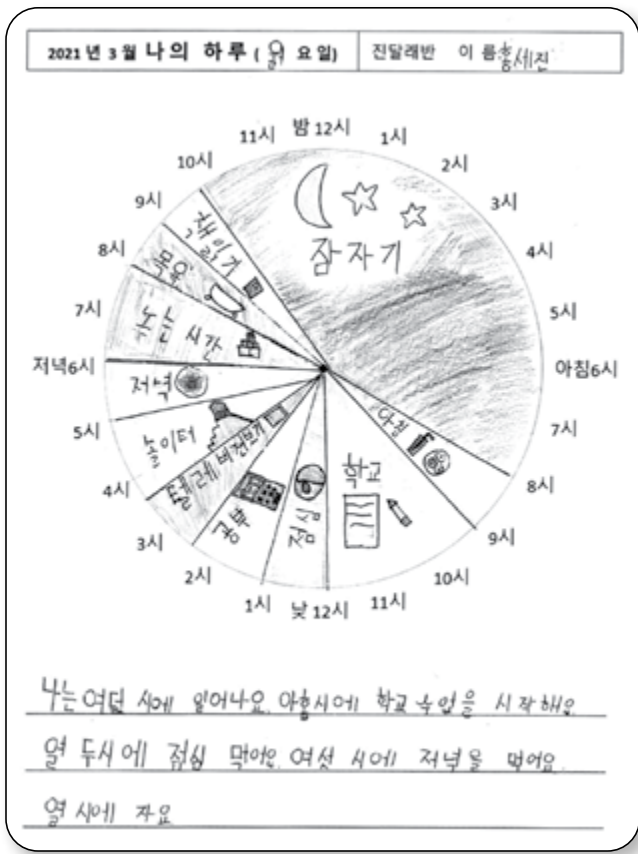 2021 년 3 월 나의 하루 ( 월 요 일) 진달래반 이 름 홍세진
밤 12시
1시
2시
3시
4시
5시
아침6시
7시
8시
9시
10시
11시
낮 12시
1시
2시
3시
4시
5시
저녁6시
7시
8시
9시
10시
11시
잠자기
아침
학교
점심
공부
텔레비전보기
놀이터
저녁
시간
목욕
책읽기
나는 여덟 시에 일어나요. 아홉시에 학교 수업을 시작해요
열 두시에 점심 먹어요. 여섯 시에 저녁을 먹어요.
열 시에 자요